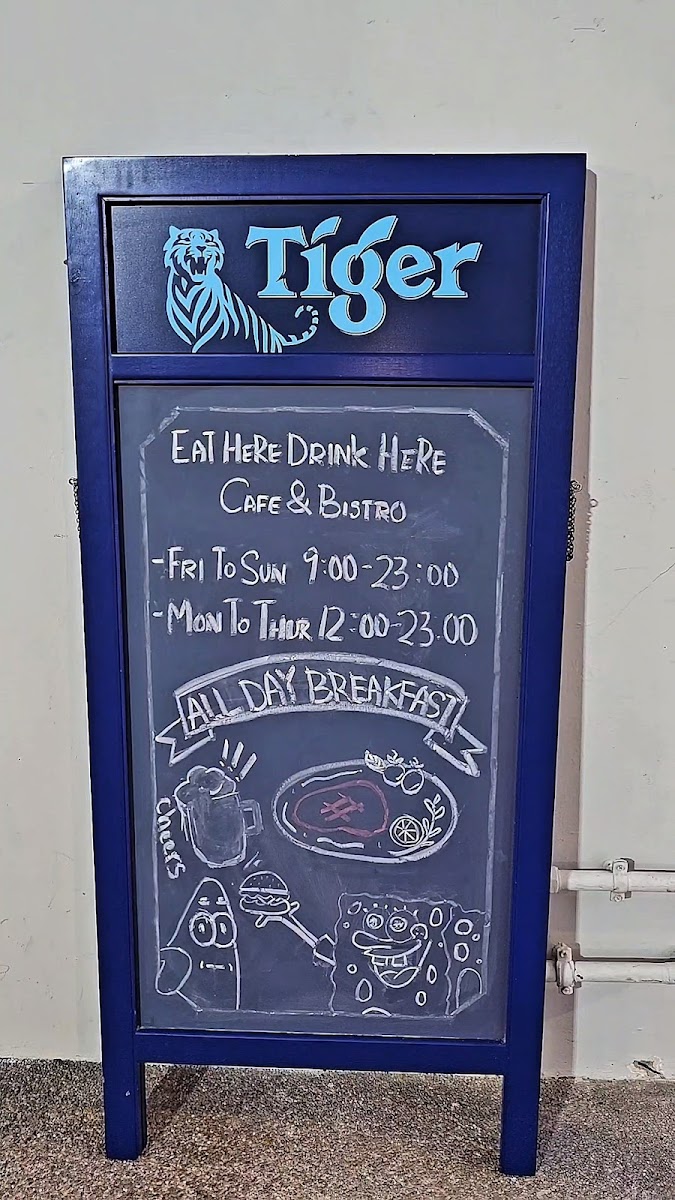 Tiger
EAT HERE DRINK HERE
CAFE & BISTRO
-FRI TO SUN 9:00-23:00
-MON TO THUR 12:00-23.00
ALL DAY BREAKFAST
cheers